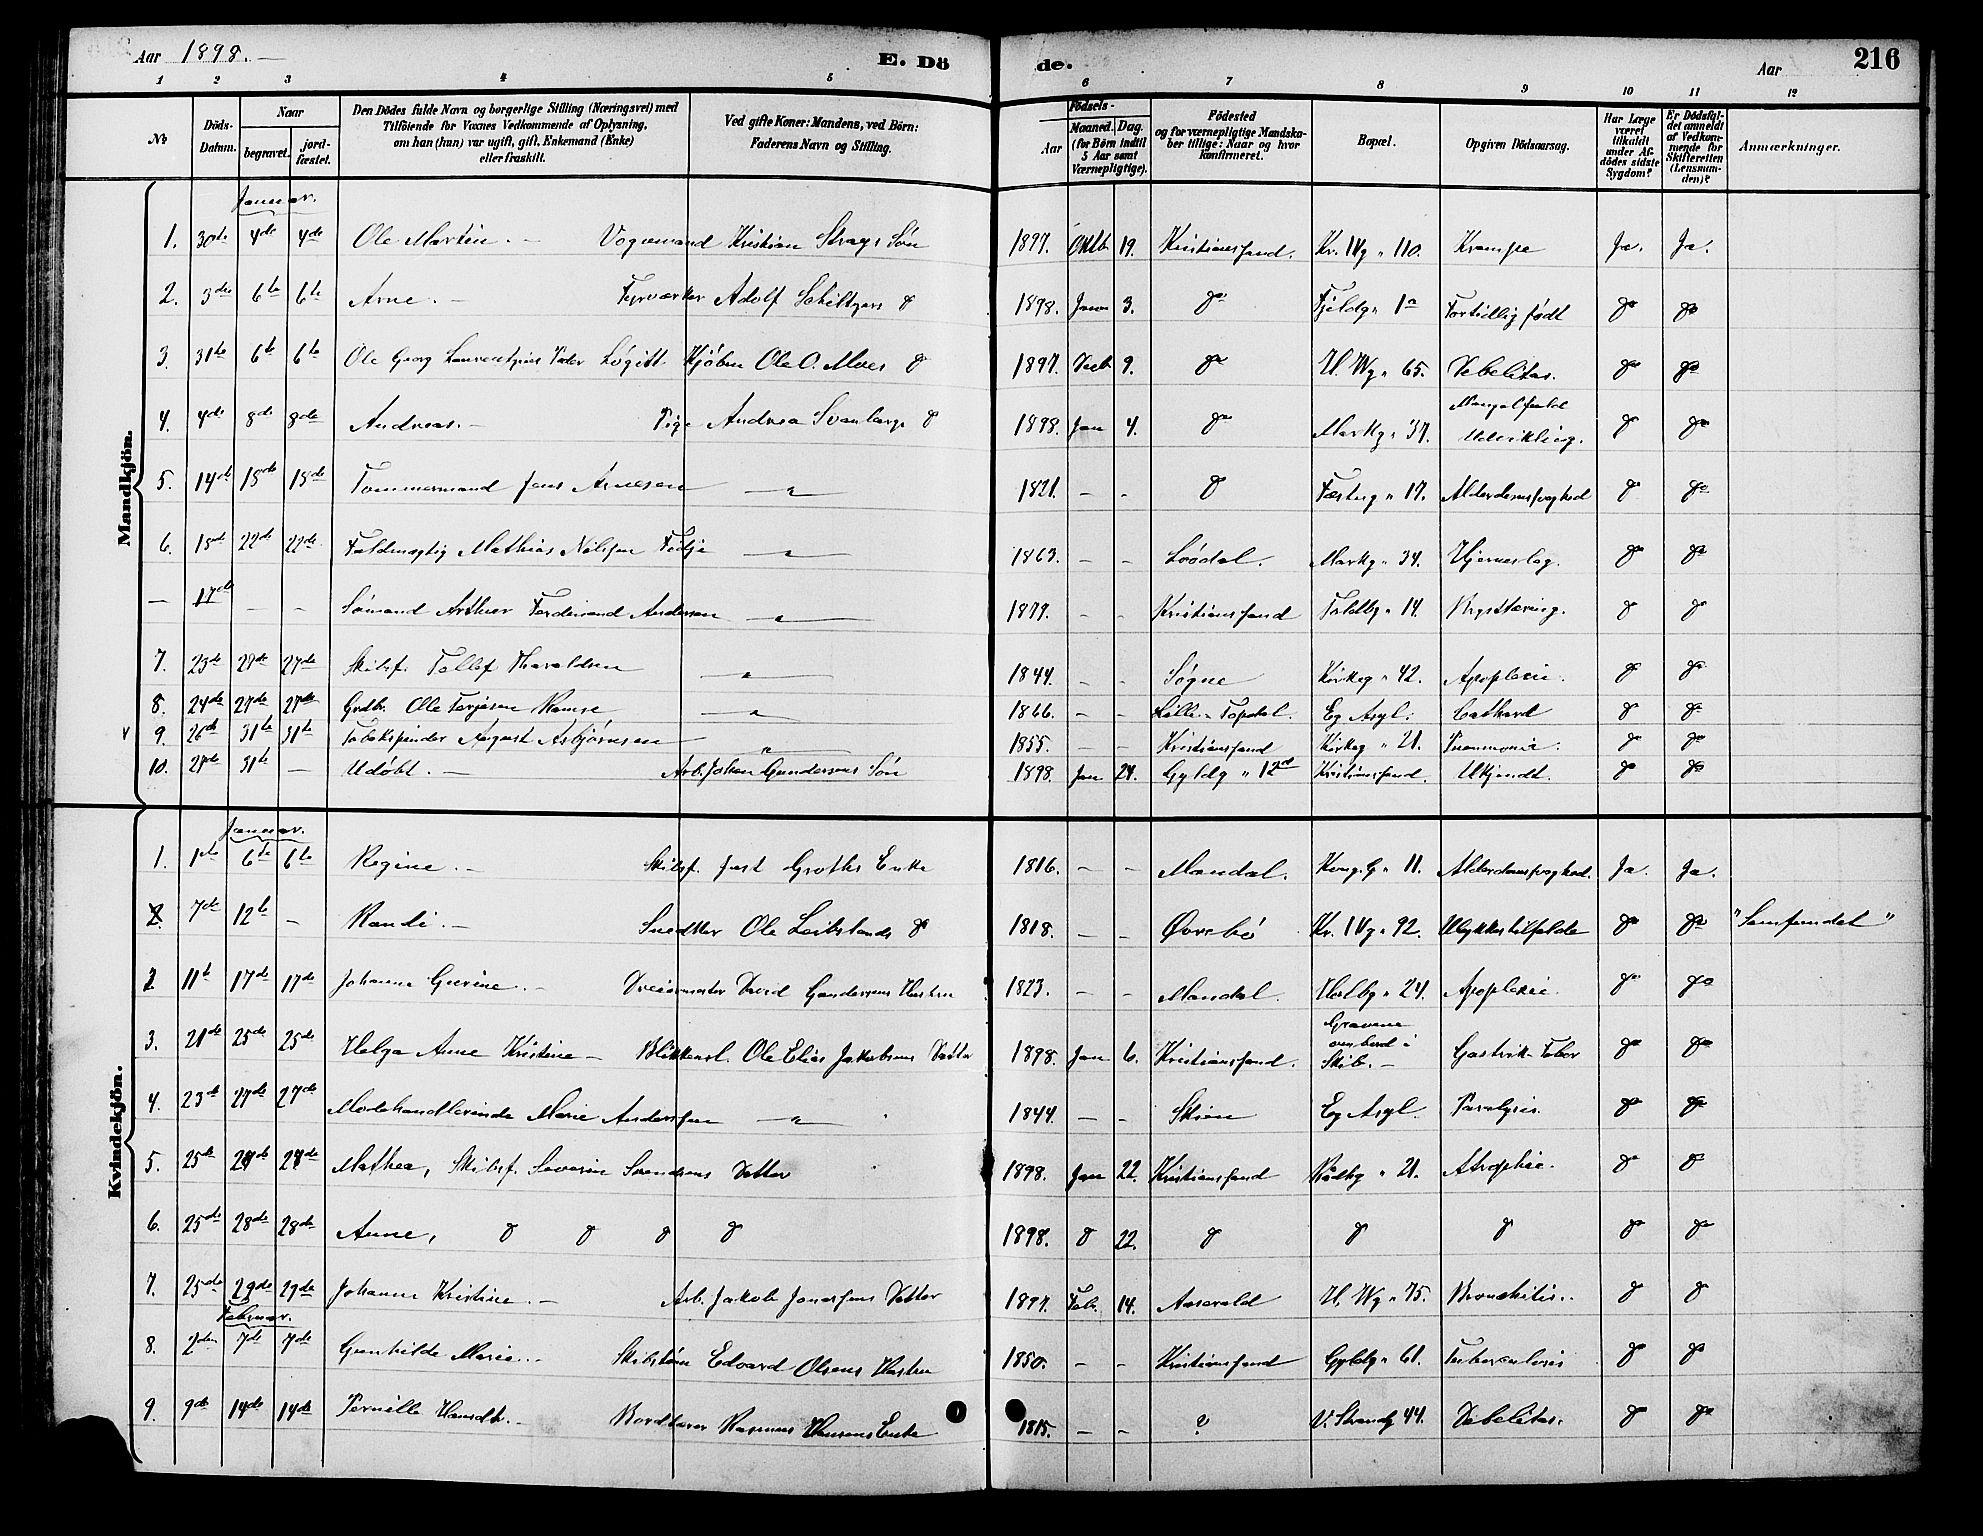 Aar 1898. E. Döde. Aar 216
1 2 3 4 5 6 7 8 9 10 11 12
No
Döds-Datum.
Naar
begravet.
jordfæstet.
Den Dödes fulde Navn og borgerlige Stilling (Næringsvei) med Tilföiende for Voxnes Vedkommende af Oplysning, om han (hun) var ugift, gift, Enkemand (Enke) eller fraskilt.
Ved gifte Koner: Mandens, ved Börn: Faderens Navn og Stilling.
Födsels-
Aar
Maaned. Dag.
(for Börn indtil 5 Aar samt Værnepligtige).
Födested og for værnepligtige Mandskaber tillige: Naar og hvor konfirmeret.
Bopæl.
Opgiven Dödsaarsag.
Har Læge været tilkaldt under Afdödes sidste Sygdom?
Er Dödsfaldet anmeldt af Vedkommende for Skifteretten (Lensmanden)?
Anmærkninger.
Mandkjön.
Januar.
1. 30te 4de 4de Ole Martin. - Vognmand Kristian Strays Søn 1897. Oktb 19. Kristianssand. Kr. IVg " 110. Krampe Ja. Ja.
2. 3die 6te 6te Arne. - Fyrværker Adolf do 1898. Janr 3. do Fjeldg " 1a Fortidlig født do do
3. 31te 6te 6te Ole Georg Kjøbm Ole O. Moes do 1897. Decb 9. do H. Wg " 65. Debelitas. do do
4. 4de 8de 8de Andreas. - Pige Andrea do 1898. Jan 4. do Markg " 37. Mangelfuld Udvikling. do do
5. 14de 18de 18de Tommermand Jens Arnesen - " - 1821. - - do Fæstng " 17. Alderdomssvaghed do do
6. 18de 22de 22de Fuldmægtig Mathias Nilssen - " - 1863. - - Markg " 34. Hjerneslag. do do
- 17de - - Sømand Arthur Ferdinand Andersen - " - 1877. - - Kristianssand Toldbg " 14. Brysttæring. do do
7. 23de 27de 27de Skibsf. Tellef Haraldsen - " - 1844. - - Søgne Kirkeg " 42. Apoplexie. do do
8. 24de 27de 27de Grdbr. Ole Terjesen - " - 1866. - - Lille - Topdal. Eg Asyl. do do
9. 26de 31te 31te Tobakspinder August Asbjørnsen " 1855. - - Kristianssand Kirkeg " 21. Pneumonie. do do
10. 27de 31te - Udøbt. - Arb. Johan Gundersens Søn 1898. Jan 27. Gyldg " 12 Kristianssand. Ukjendt. do do
Kvindekjön.
Januar.
1. 1ste 6te 6te Regine. - Skibsf. Just Groths Enke 1816. - - Mandal. Kong. G " 11. Alderdomssvaghed. Ja. Ja.
2. 7de 12te - Randi. - Snedker Ole do 1818. - - Øvrebø Kr. IVg " 92. Ulykkestilfælde do do "Samfundet"
2 11te 17de 17de Johanne Gurine. - Dreiermester David Gundersens Hustru 1823. - - Mandal. Holbg " 24. Apoplexie. do do
3. 21de 25de 25de Helga Anne Kristine - Blikkensl. Ole Elias Jakobsens Datter 1898. Jan 6. Kristianssand. Gravene ombord i Skib. - Gastrik Feber do do
4. 23de 27de 27de Modehandlerinde Marie Anderssen - " - 1844. - - Skien Eg Asyl. Paralysis. do do
5. 25de 28de 28de Mathea, Skibsf. Severin Svendsens Datter 1898. Jan 22. Kristianssand Rådhg " 21. Atrophie. do do
6. 25de 28de 28de Anne, do do do do 1898. do 22. do do do do do
7. 25de 29de 29de Johanne Kristine. - Arb. Jakob Jonassens Datter 1897. Febr. 14. H. Wg " 75. Bronchitis. do do
Februar.
8. 2den 7de 7de Gunhilde Marie. - Skibstøm Edvard Olsens Hustru 1850. - - Kristianssand Gyldg " 61. Tuberculosis do do
9. 9de 14de 14de Pernille - Rasmus Hansens Enke 1815. - - ? V. Strandg 44. Debelitas. do do